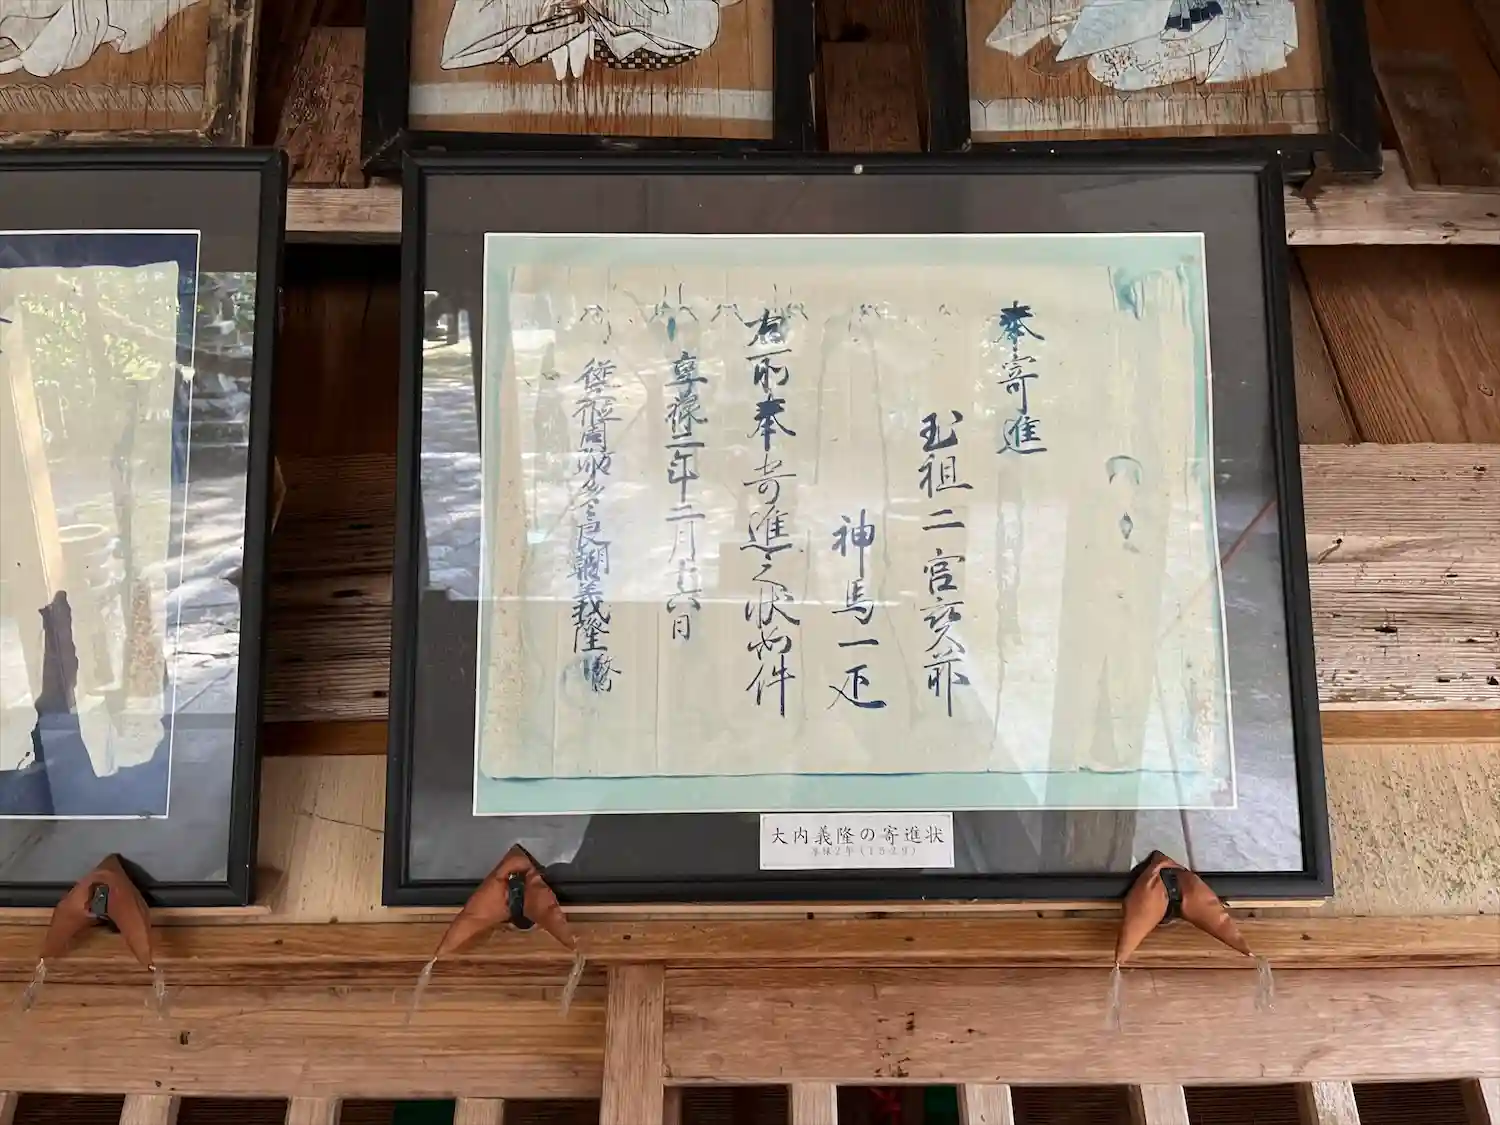 奉寄進
玉祖二宮宝前
神馬一疋
右所奉寄進之状如件
享禄二年二月十六日
従五位周防多々良朝臣義隆 敬白
大内義隆の寄進状
享禄2年(1529)